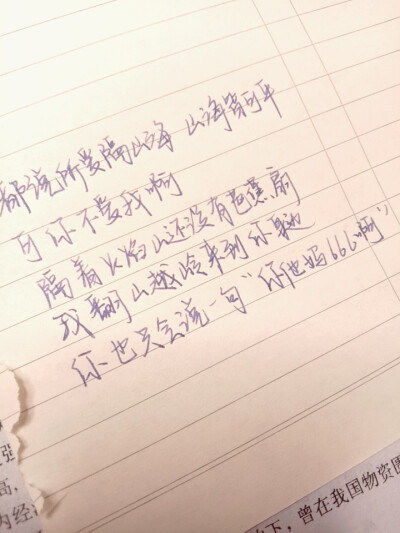 都说所爱隔山海 山海皆可平
可你不爱我啊
隔着火焰山还没有芭蕉扇
我翻山越岭来到你身边
你也只会说一句“你他妈666啊”
强
高,
内经
下,曾在我国物资匮